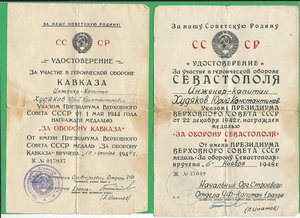 ЗА НАШУ СОВЕТСКУЮ РОДИНУ
СС СР
УДОСТОВЕРЕНИЕ
ЗА УЧАСТИЕ В ГЕРОИЧЕСКОЙ ОБОРОНЕ
КАВКАЗА
Инженер-Капитан
Худяков Юрий Константинович
УКАЗОМ ПРЕЗИДИУМА ВЕРХОВНОГО
СОВЕТА СССР ОТ 1 МАЯ 1944 ГОДА
НАГРАЖДЕН МЕДАЛЬЮ
„ЗА ОБОРОНУ КАВКАЗА"
ОТ ИМЕНИ ПРЕЗИДИУМА ВЕРХОВНОГО
СОВЕТА СССР МЕДАЛЬ „ЗА ОБОРОНУ
КАВКАЗА" ВРУЧЕНА
№ 017937
За нашу Советскую Родину
СС СР
УДОСТОВЕРЕНИЕ
За участие в героической обороне
СЕВАСТОПОЛЯ
Инженер-капитан
Худяков Юрий Константинович
Указом ПРЕЗИДИУМА
ВЕРХОВНОГО СОВЕТА СССР
от 22 декабря 1942 г. награжден
медалью
„ЗА ОБОРОНУ СЕВАСТОПОЛЯ"
От имени ПРЕЗИДИУМА
ВЕРХОВНОГО СОВЕТА СССР
медаль „За оборону Севасто-
поля" вручена 6 ноября 1944 г.
Начальник